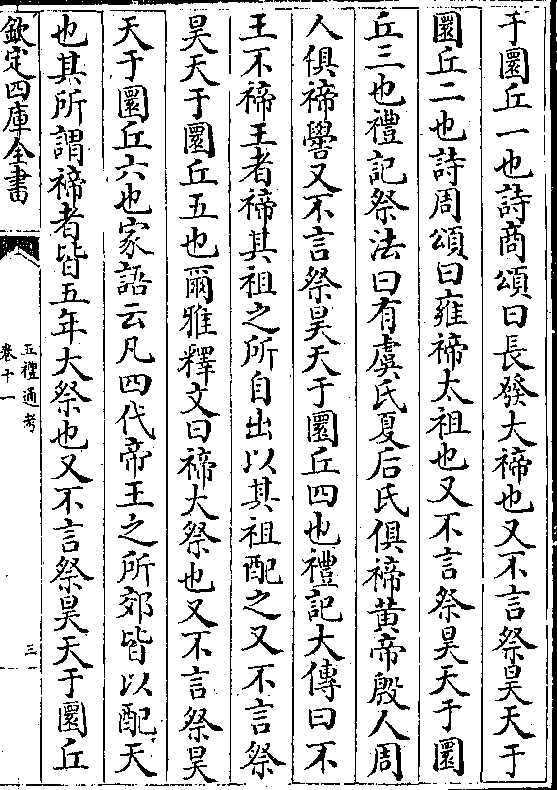 于圜丘一也詩商頌曰長發大禘也又不言祭昊天于
圜丘二也詩周頌曰雍禘太祖也又不言祭昊天于圜
丘三也禮記祭法曰有虞氏夏后氏俱禘黃帝殷人周
人俱禘嚳又不言祭昊天于圜丘四也禮記大傳曰不
王不禘王者禘其祖之所自出以其祖配之又不言祭
昊天于圜丘五也爾雅釋文曰禘大祭也又不言祭昊
天于圜丘六也家語云凡四代帝王之所郊皆以配天
也其所謂禘者皆五年大祭也又不言祭昊天于圜丘
欽定四庫全書
五禮通考
卷十一
三